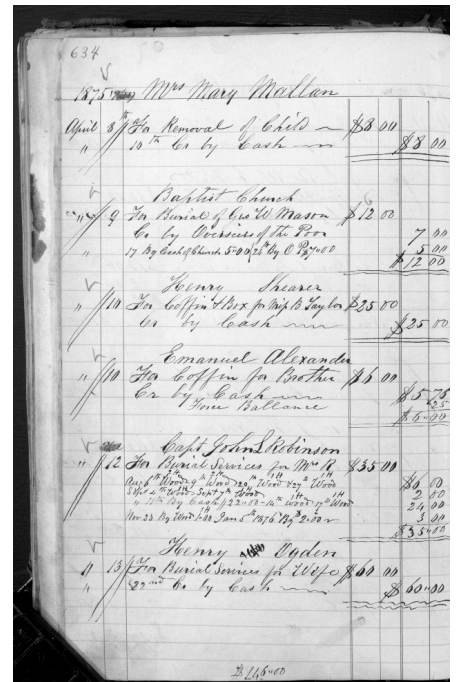 634
1875 Mrs Mary Maltan
April 8th For Removal of Child $8 00
" 10th Cr by Cash $8 00
Baptist Church
" 9 For Burial of Geo W Mason $12 00
Cr by Overseers of the Poor 7 00
" 17 By Cash of Church 5.00 / 24th By O P $7.00 5 00
$12 00
Henry Shearer
" 10 For Coffin & Box for B Taylor $25 00
Cr by Cash $25 00
Emanuel Alexander
" 10 For Coffin for Brother $6 00
Cr by Cash $5 75
Ballance 25
$6.00
Capt John S Robinson
" 12 For Burial Services for Mrs R $35 00
Aug 6th Wood 9th Wood 20th Wood & 27th Wood $6 00
Sept 4th Wood Sept 7th Wood 2 00
By Cash $22.00 14th Wood 17th Wood 24 00
Nov 23 By Wood 1.00 Jan 5th 1876 By 2.00 3 00
$35.00
Henry Ogden
" 13 For Burial Services for Wife $60 00
" 22nd Cr by Cash $60.00
$146.00